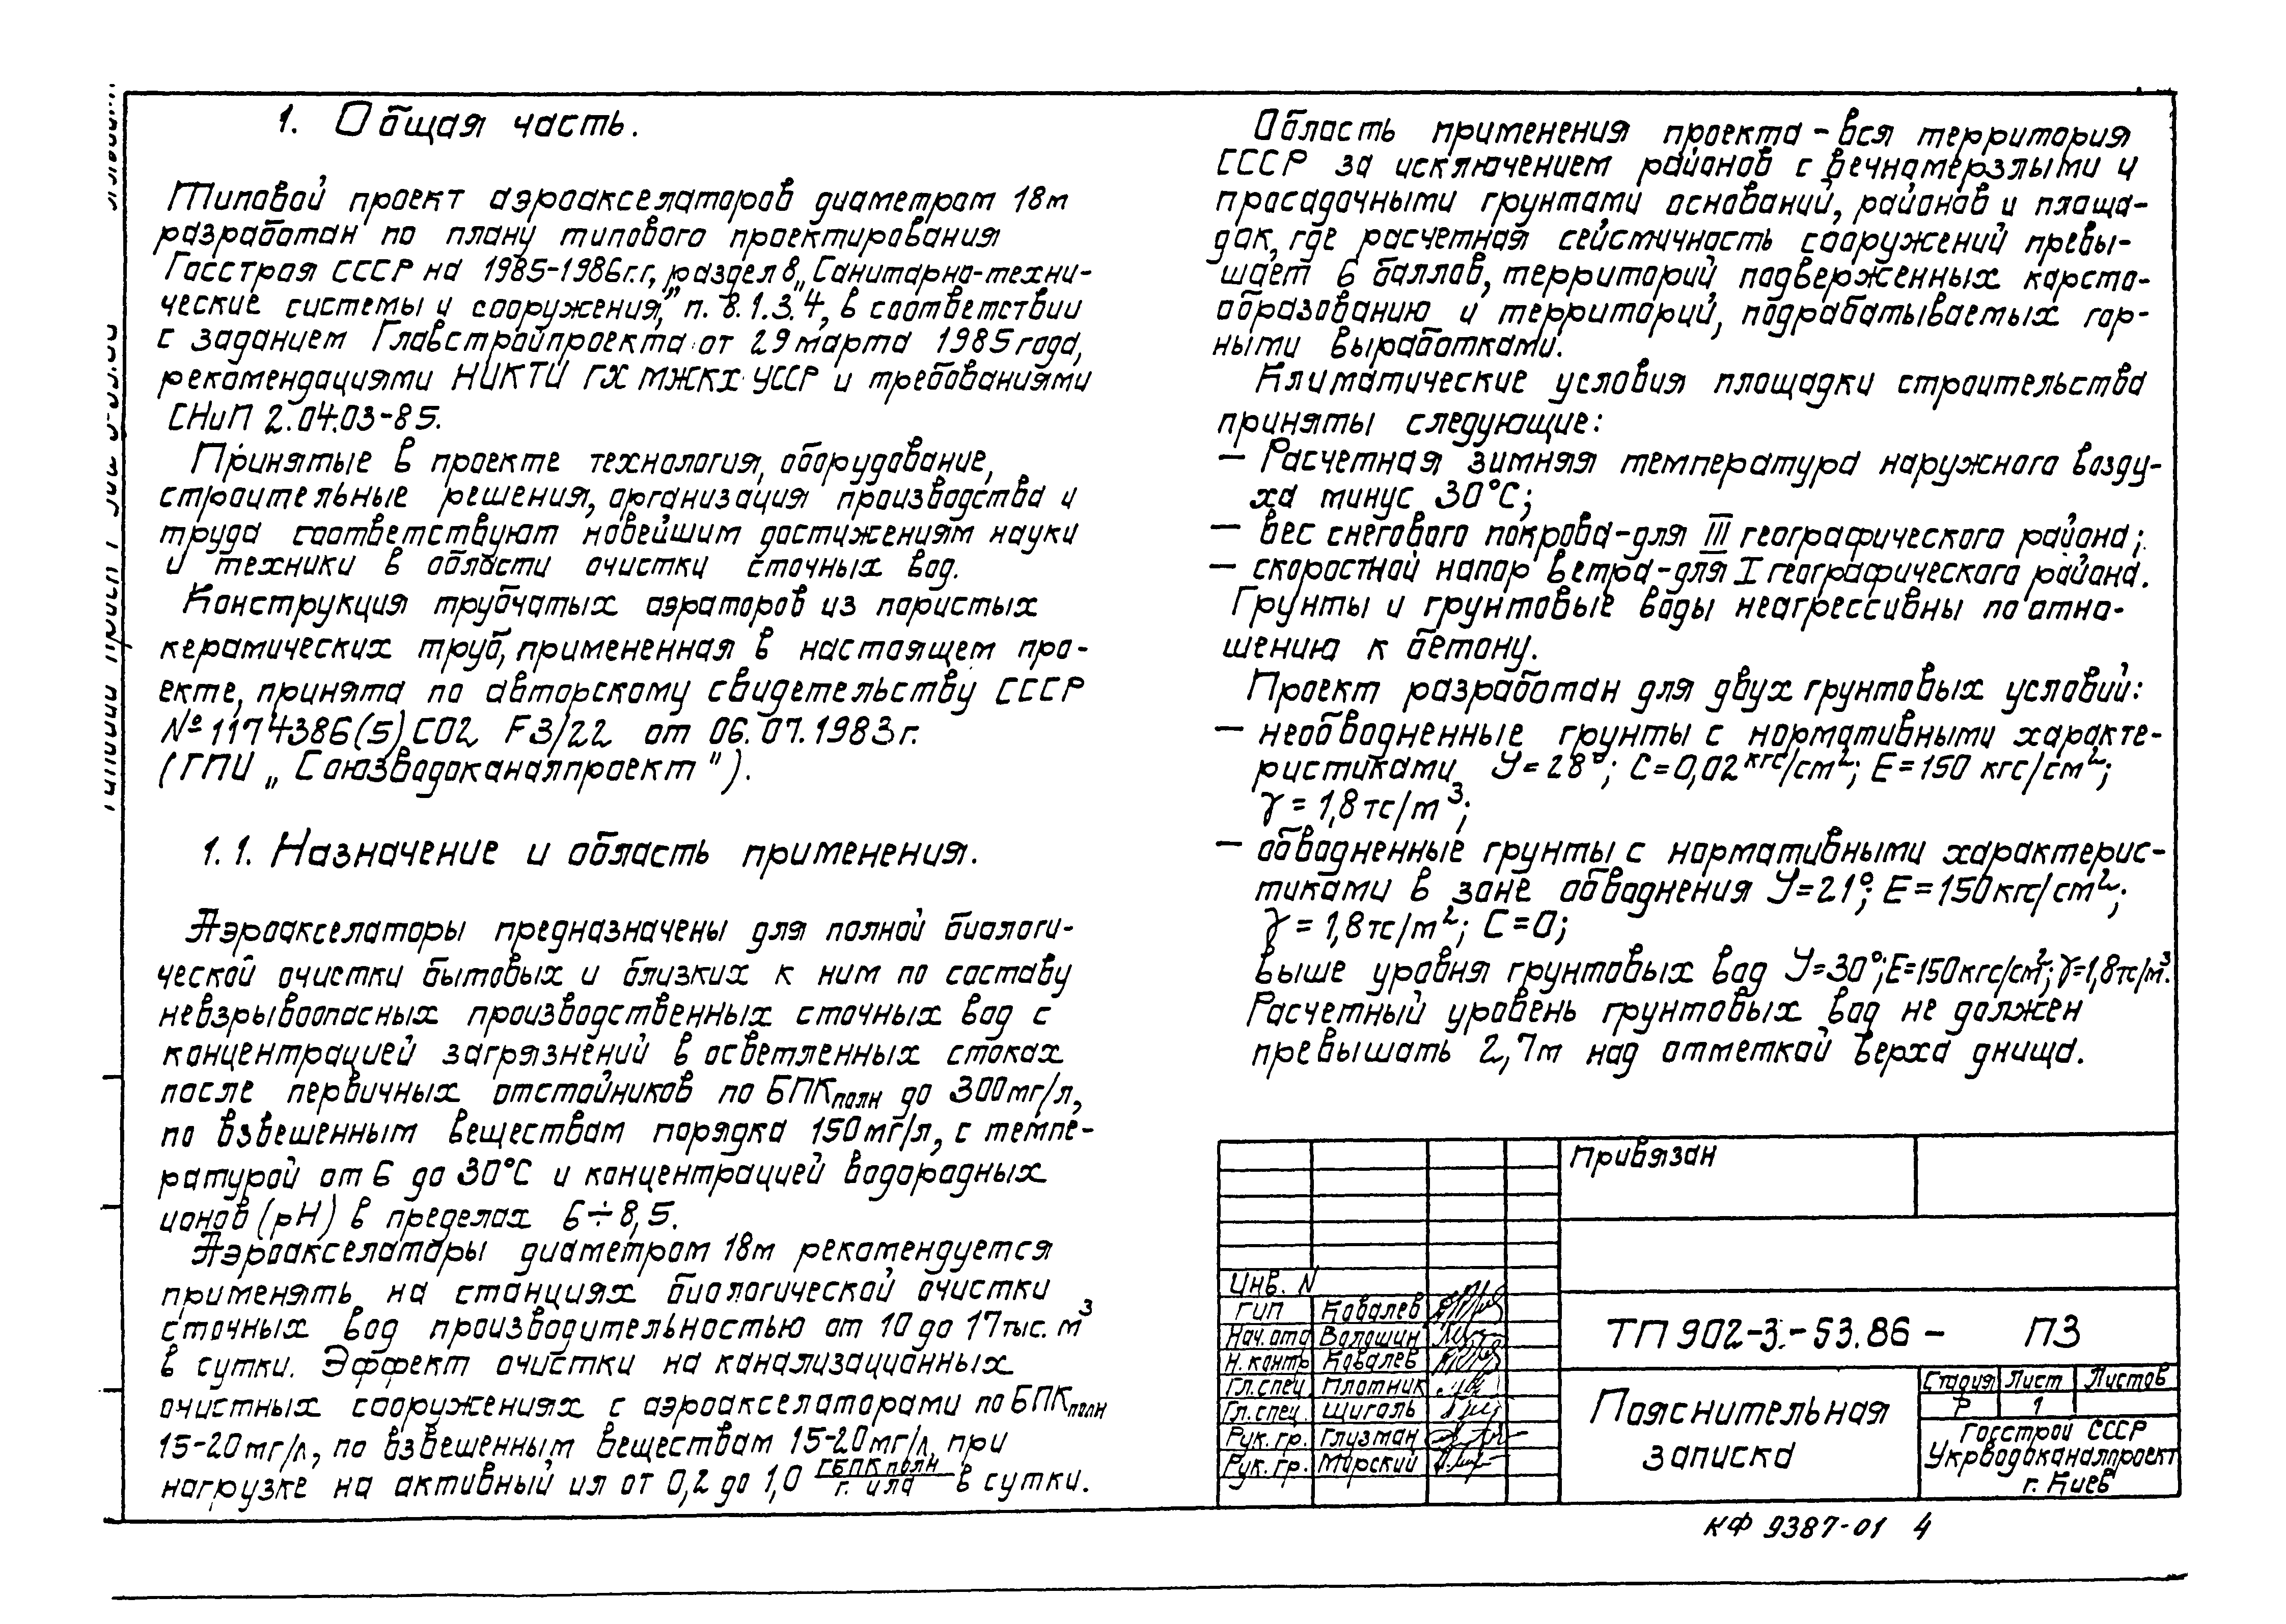 1. Общая часть.
Типовой проект аэроакселаторов диаметром 18м
разработан по плану типового проектирования
Госстроя СССР на 1985-1986г.г., раздел 8 „Санитарно-техни-
ческие системы и сооружения," п. 8.1.3.4, в соответствии
с заданием Главстройпроекта от 29 марта 1985 года,
рекомендациями НИКТИ ГХ МЖКХ УССР и требованиями
СНиП 2.04.03-85.
Принятые в проекте технология, оборудование,
строительные решения, организация производства и
труда соответствуют новейшим достижениям науки
и техники в области очистки сточных вод.
Конструкция трубчатых аэраторов из пористых
керамических труб, примененная в настоящем про-
екте, принята по авторскому свидетельству СССР
№ 1174386(5) С02 F3/22 от 06.07.1983г.
(ГПИ „Союзводоканалпроект").
1.1. Назначение и область применения.
Аэроакселаторы предназначены для полной биологи-
ческой очистки бытовых и близких к ним по составу
невзрывоопасных производственных сточных вод с
концентрацией загрязнений в осветленных стоках
после первичных отстойников по БПКполн до 300мг/л,
по взвешенным веществам порядка 150мг/л, с темпе-
ратурой от 6 до 30°С и концентрацией водородных
ионов (рН) в пределах 6÷8,5.
Аэроакселаторы диаметром 18м рекомендуется
применять на станциях биологической очистки
сточных вод производительностью от 10 до 17тыс. м³
в сутки. Эффект очистки на канализационных
очистных сооружениях с аэроакселаторами по БПКполн
15-20мг/л, по взвешенным веществам 15-20мг/л, при
нагрузке на активный ил от 0,2 до 1,0 гБПКполн/г. ила в сутки.
Область применения проекта - вся территория
СССР за исключением районов с вечномерзлыми и
просадочными грунтами оснований, районов и площа-
док, где расчетная сейсмичность сооружений превы-
шает 6 баллов, территорий, подверженных карсто-
образованию и территорий, подрабатываемых гор-
ными выработками.
Климатические условия площадки строительства
приняты следующие:
— Расчетная зимняя температура наружного возду-
ха минус 30°С;
— вес снегового покрова-для III географического района;
— скоростной напор ветра-для I географического района.
Грунты и грунтовые воды неагрессивны по отно-
шению к бетону.
Проект разработан для двух грунтовых условий:
— необводненные грунты с нормативными характе-
ристиками У=28°; С=0,02 кгс/см²; Е=150 кгс/см²;
γ=1,8тс/м³;
— обводненные грунты с нормативными характерис-
тиками в зоне обводнения У=21°; Е=150кгс/см²;
γ=1,8тс/м²; С=0;
выше уровня грунтовых вод У=30°; Е=150кгс/см²; γ=1,8тс/м³.
Расчетный уровень грунтовых вод не должен
превышать 2,7м над отметкой верха днища.
Привязан
Инв. N
ГИП Ковалев
Нач.отд Волошин
Н.контр Ковалев
Гл.спец. Плотник
Гл.спец. Щиголь
Рук.гр. Глузман
Рук.гр. Морский
ТП 902-3-53.86 - ПЗ
Пояснительная
записка
Стадия Лист Листов
Р 1
Госстрой СССР
Укрводоканалпроект
г. Киев
КФ 9387-01 4